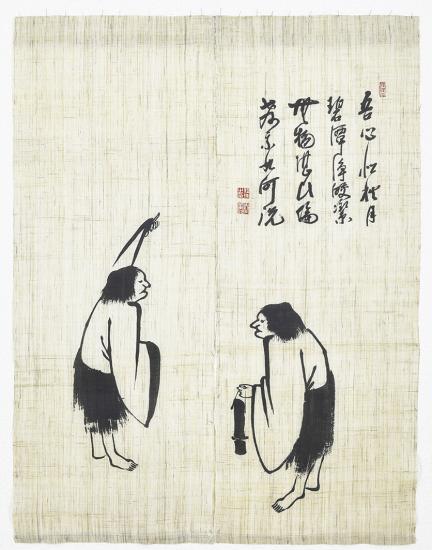 吾心似秋月
碧潭淨皎潔
無物堪比倫
教我如何說